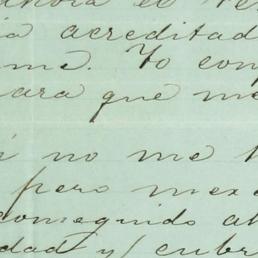 ahora el
ia acreditad
me. Yo con
para que me
i no me
pero mex
conseguido al
dad y cubr